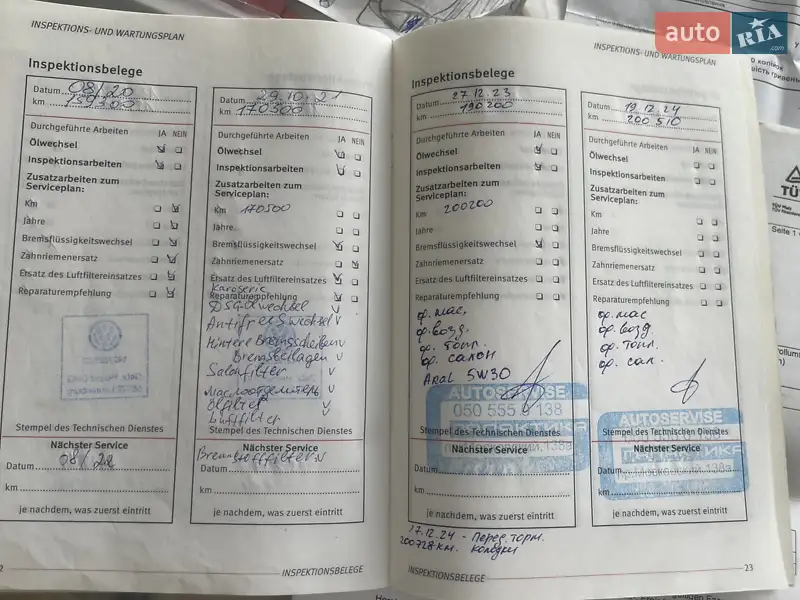 auto RIA.com
INSPEKTIONS- UND WARTUNGSPLAN
Inspektionsbelege
Datum 08/20
km 159300
Durchgeführte Arbeiten JA NEIN
Ölwechsel
Inspektionsarbeiten
Zusatzarbeiten zum
Serviceplan:
Km
Jahre
Bremsflüssigkeitswechsel
Zahnriemenersatz
Ersatz des Luftfiltereinsatzes
Reparaturempfehlung
Stempel des Technischen Dienstes
Nächster Service
Datum 08/22
km
je nachdem, was zuerst eintritt
Datum 29.10.21
km 170500
Durchgeführte Arbeiten JA NEIN
Ölwechsel
Inspektionsarbeiten
Zusatzarbeiten zum
Serviceplan:
Km 170500
Jahre
Bremsflüssigkeitswechsel
Zahnriemenersatz
Ersatz des Luftfiltereinsatzes
Karoserie
Reparaturempfehlung
DSG Ölwechsel v
Antifreeswechsel v
Hintere Bremsscheiben v
Bremsbeilagen v
Salonfilter v
Маслоотделитель v
Ölfilter v
Luftfilter v
Stempel des Technischen Dienstes
Nächster Service
Brennstofffilter v
Datum
km
je nachdem, was zuerst eintritt
INSPEKTIONSBELEGE
INSPEKTIONS- UND WARTUNGSPLAN
Inspektionsbelege
Datum 27.12.23
km 190200
Durchgeführte Arbeiten JA NEIN
Ölwechsel
Inspektionsarbeiten
Zusatzarbeiten zum
Serviceplan:
Km 200200
Jahre
Bremsflüssigkeitswechsel
Zahnriemenersatz
Ersatz des Luftfiltereinsatzes
Reparaturempfehlung
ф. мас.
ф. возд.
ф. топл.
ф. салон
Aral 5W30
AUTOSERVISE
050 555 138
Stempel des Technischen Dienstes
Nächster Service
Datum
km
je nachdem, was zuerst eintritt
17.12.24 - Перед. торм.
200728 км. колодки
Datum 19.12.24
km 200510
Durchgeführte Arbeiten JA NEIN
Ölwechsel
Inspektionsarbeiten
Zusatzarbeiten zum
Serviceplan:
Km
Jahre
Bremsflüssigkeitswechsel
Zahnriemenersatz
Ersatz des Luftfiltereinsatzes
Reparaturempfehlung
ф. мас
ф. возд
ф. топл.
ф. сал.
AUTOSERVISE
Stempel des Technischen Dienstes
Nächster Service
Datum
km
je nachdem, was zuerst eintritt
INSPEKTIONSBELEGE
23
TÜV
Seite 1